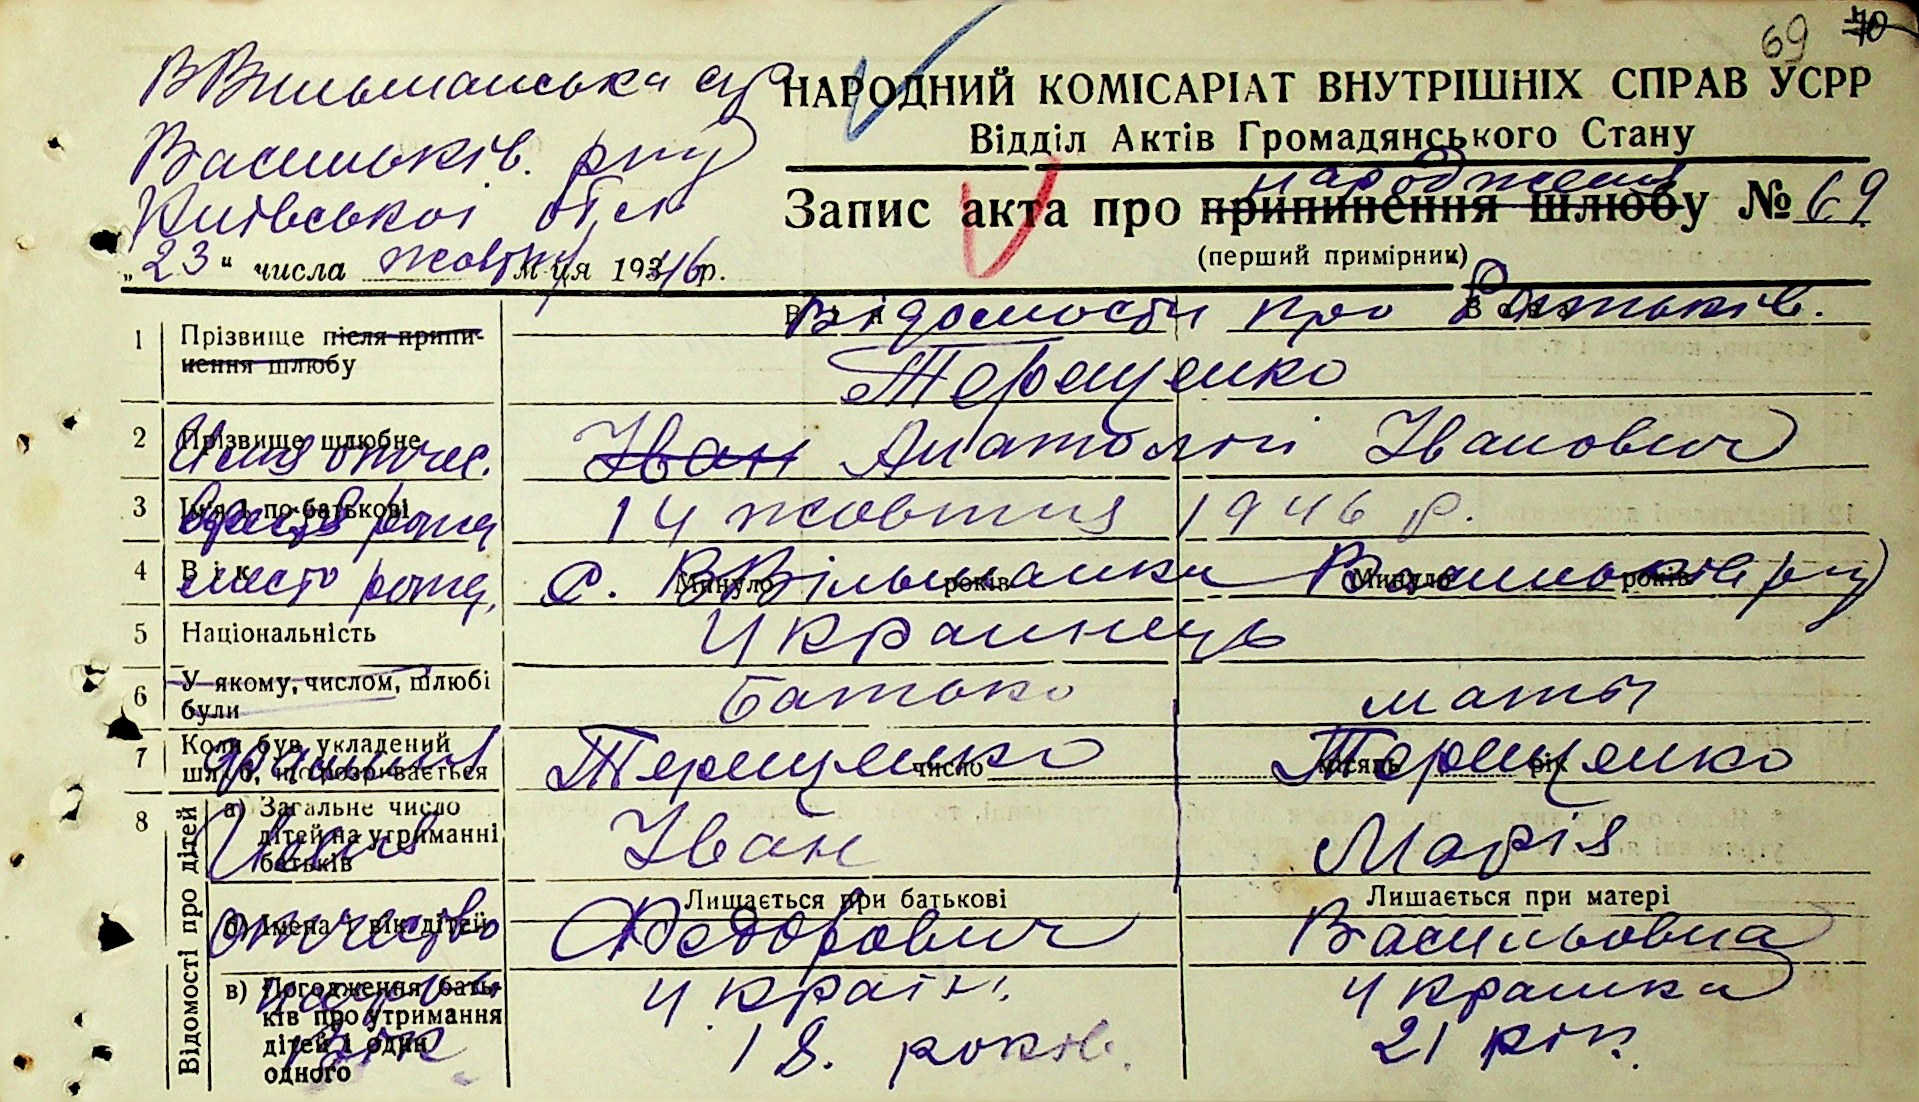 69 70
В Вильшанська с/р
НАРОДНИЙ КОМІСАРІАТ ВНУТРІШНІХ СПРАВ УСРР
Відділ Актів Громадянського Стану
Васильків. р-ну
Київської обл
народження
Запис акта про припинення шлюбу № 69
(перший примірник)
„23“ числа жовтня м-ця 1946 р.
Відомости про батьків.
1 Прізвище після припи-
нення шлюбу
Терещенко
2 Прізвище шлюбне
Имя отчес. Іван Анатолій Іванович
3 Ім'я і по-батькові
14 жовтня 1946 р.
4 Вік Минуло років Минуло років
место рожд. с. ВВільшанка Васильків р-ну
5 Національність Українець
6 У якому, числом, шлюбі
були
батько мати
7 Коли був укладений
шлюб, що розривається число місяць рік
Терещенко Терещенко
8 Відомості про дітей
а) Загальне число
дітей на утриманні
батьків
Имя Іван Марія
Лишається при батькові Лишається при матері
б) Імена і вік дітей
отчество Федорович Васильовна
в) Погодження бать-
ків про утримання
дітей і один
одного
україн. українка
вік 18. років. 21 рік.